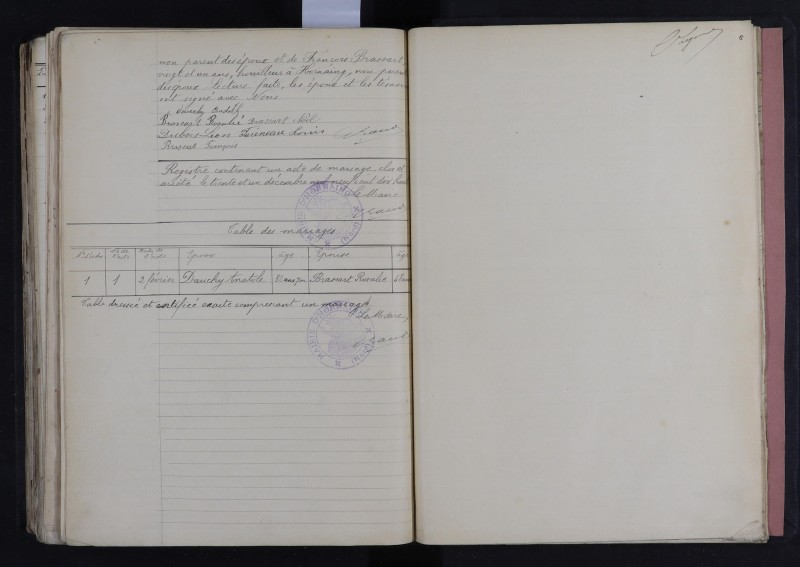 non parent des époux et de François Brassart
vingt et un ans, houilleur à Hornaing, non parent
des époux. Lecture faite, les époux et les témoins
ont signé avec Nous
Dauchy Anatole
Brassart Rosalie Brassart Noël
Dubois Léon Louis
Brassart François
Registre contenant un acte de mariage, clos et
arrêté le trente et un décembre mil neuf cent
Le Maire
Table des mariages
N° d'ordre
Date de l'acte
Epoux
âge
Epouse
âge
1
1
2 février
Dauchy Anatole
Brassart Rosalie
Table dressée et certifiée exacte comprenant un mariage
Le Maire,
MAIRIE D'HORNAING (NORD)
MAIRIE D'HORNAING (NORD)
6